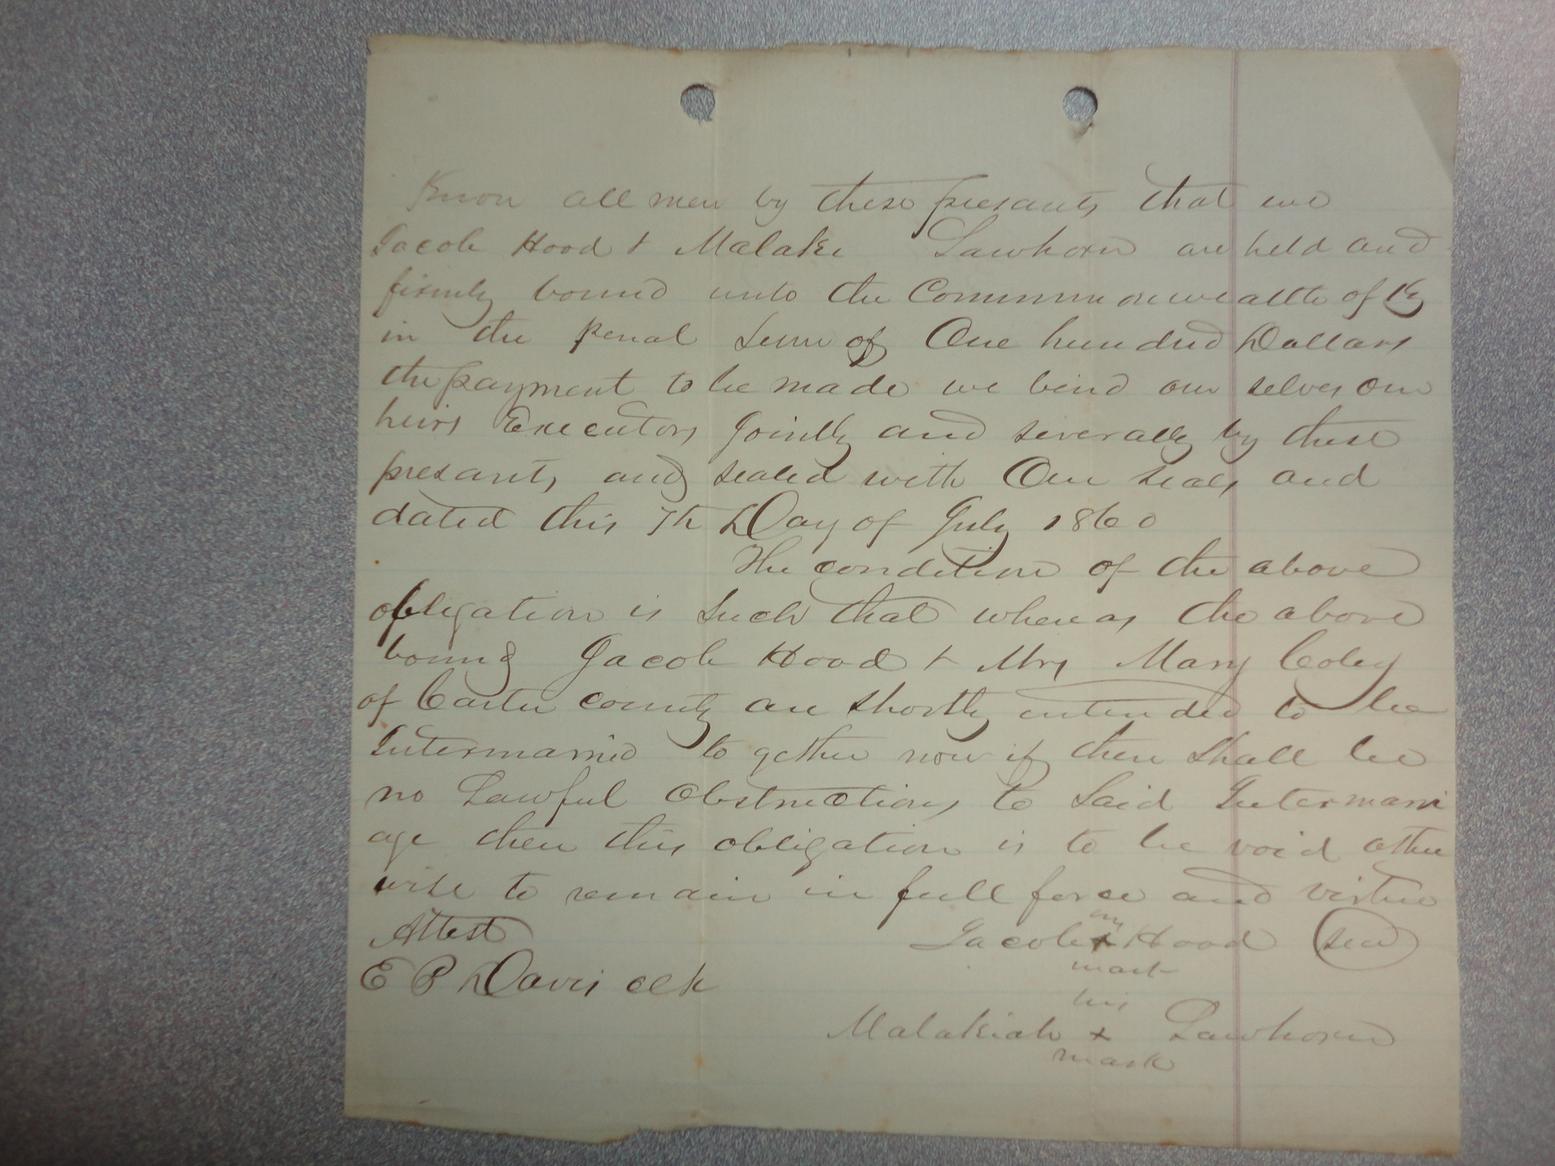 Know all men by these presants that we
Jacob Hood & Malaki Lawhorn are held and
firmly bound unto the Commmonwealth of Ky
in the penal Sum of One hundred Dollars
the payment to be made we bind our selves our
heirs Executors Jointly and severally by these
presants and sealed with Our seals and
dated this 7th Day of July 1860
The condition of the above
obligation is Such that whereas the above
bound Jacob Hood & Mrs Mary Coley
of Carter county are shortly intended to be
Intermarried to gether now if there Shall be
no Lawful Obstructions to Said Intermarri
age then this obligation is to be void other
wise to remain in full force and virtue
Attest
Jacob x Hood seal
mark
E P Davis clk
his
Malakiah x Lawhorn
mark